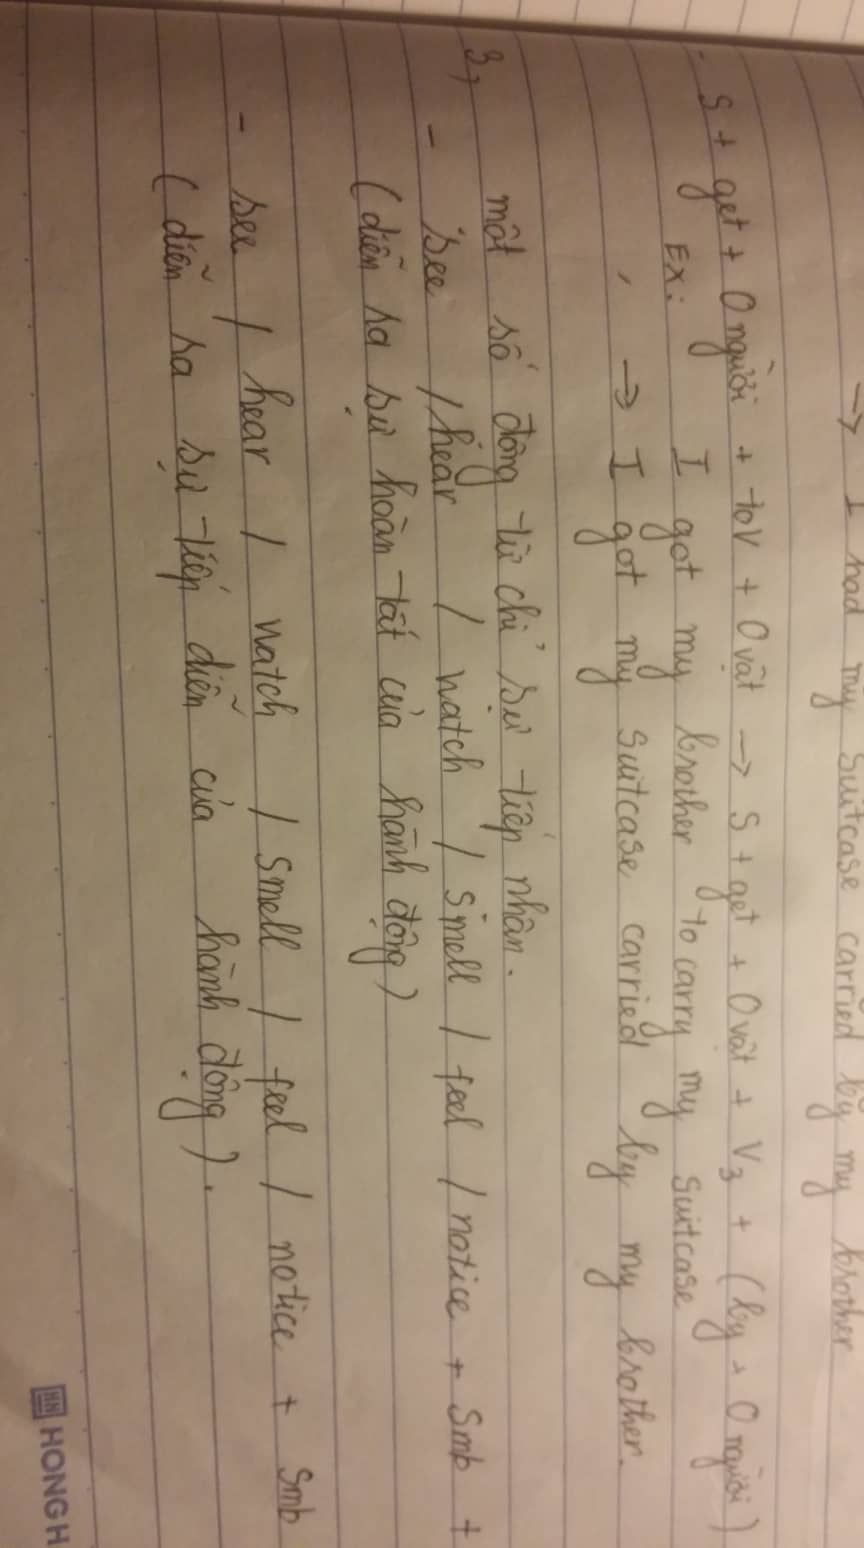 → I had my suitcase carried by my brother
- S + get + O người + to V + O vật → S + get + O vật + V3 + (by + O người)
Ex: I got my brother to carry my suitcase
→ I got my suitcase carried by my brother.
3, một số động từ chỉ sự tiếp nhận.
- see / hear / watch / smell / feel / notice + Smb +
(diễn ra sự hoàn tất của hành động)
- see / hear / watch / smell / feel / notice + Smb
(diễn ra sự tiếp diễn của hành động).
HN HONG H